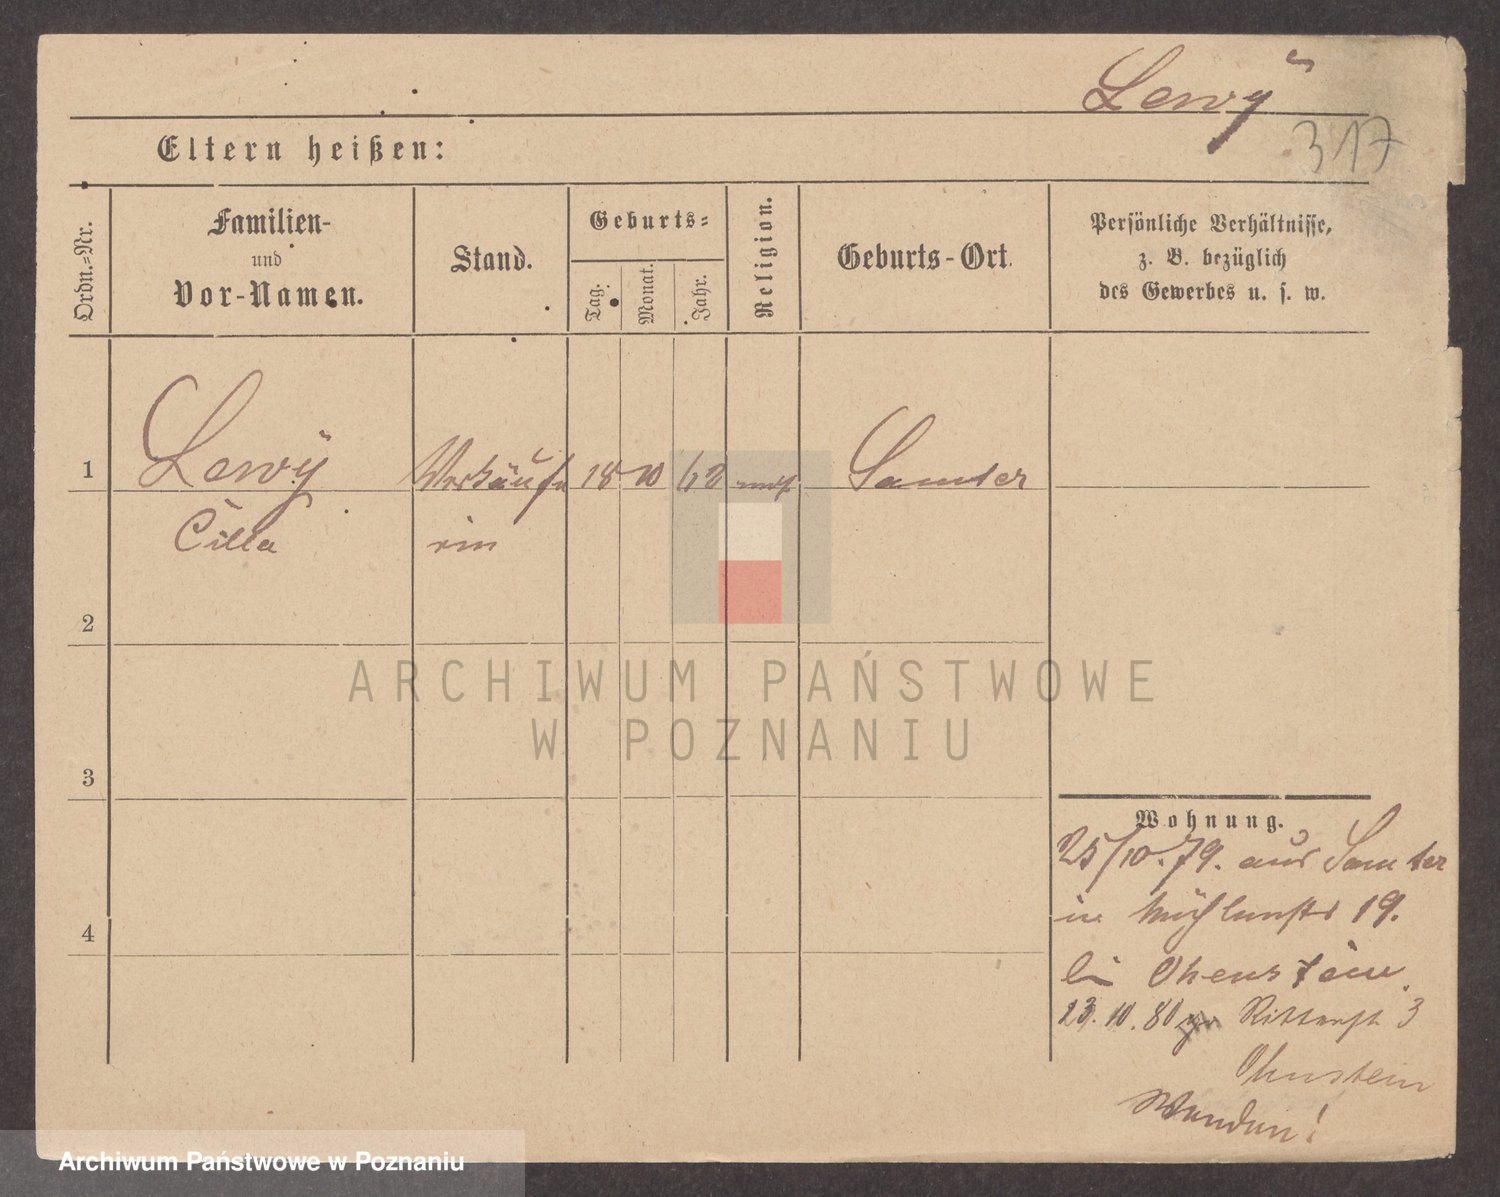 Lewÿ
317
Eltern heißen:
Ordn.=Nr.
Familien-
und
Vor-Namen.
Stand.
Geburts=
Tag.
Monat.
Jahr.
Religion.
Geburts-Ort.
Persönliche Verhältnisse,
z. B. bezüglich
des Gewerbes u. s. w.
1
Lewÿ Verkäufe 18 10 62 mos Samter
Cilla rin
2
3
4
Wohnung.
25/10.79. aus Samter
in Mühlenstr 19.
bei Ohenstein.
23.10.80 Ritterstr 3
Ohnstein
Wenden!
ARCHIWUM PAŃSTWOWE
W POZNANIU
Archiwum Państwowe w Poznaniu